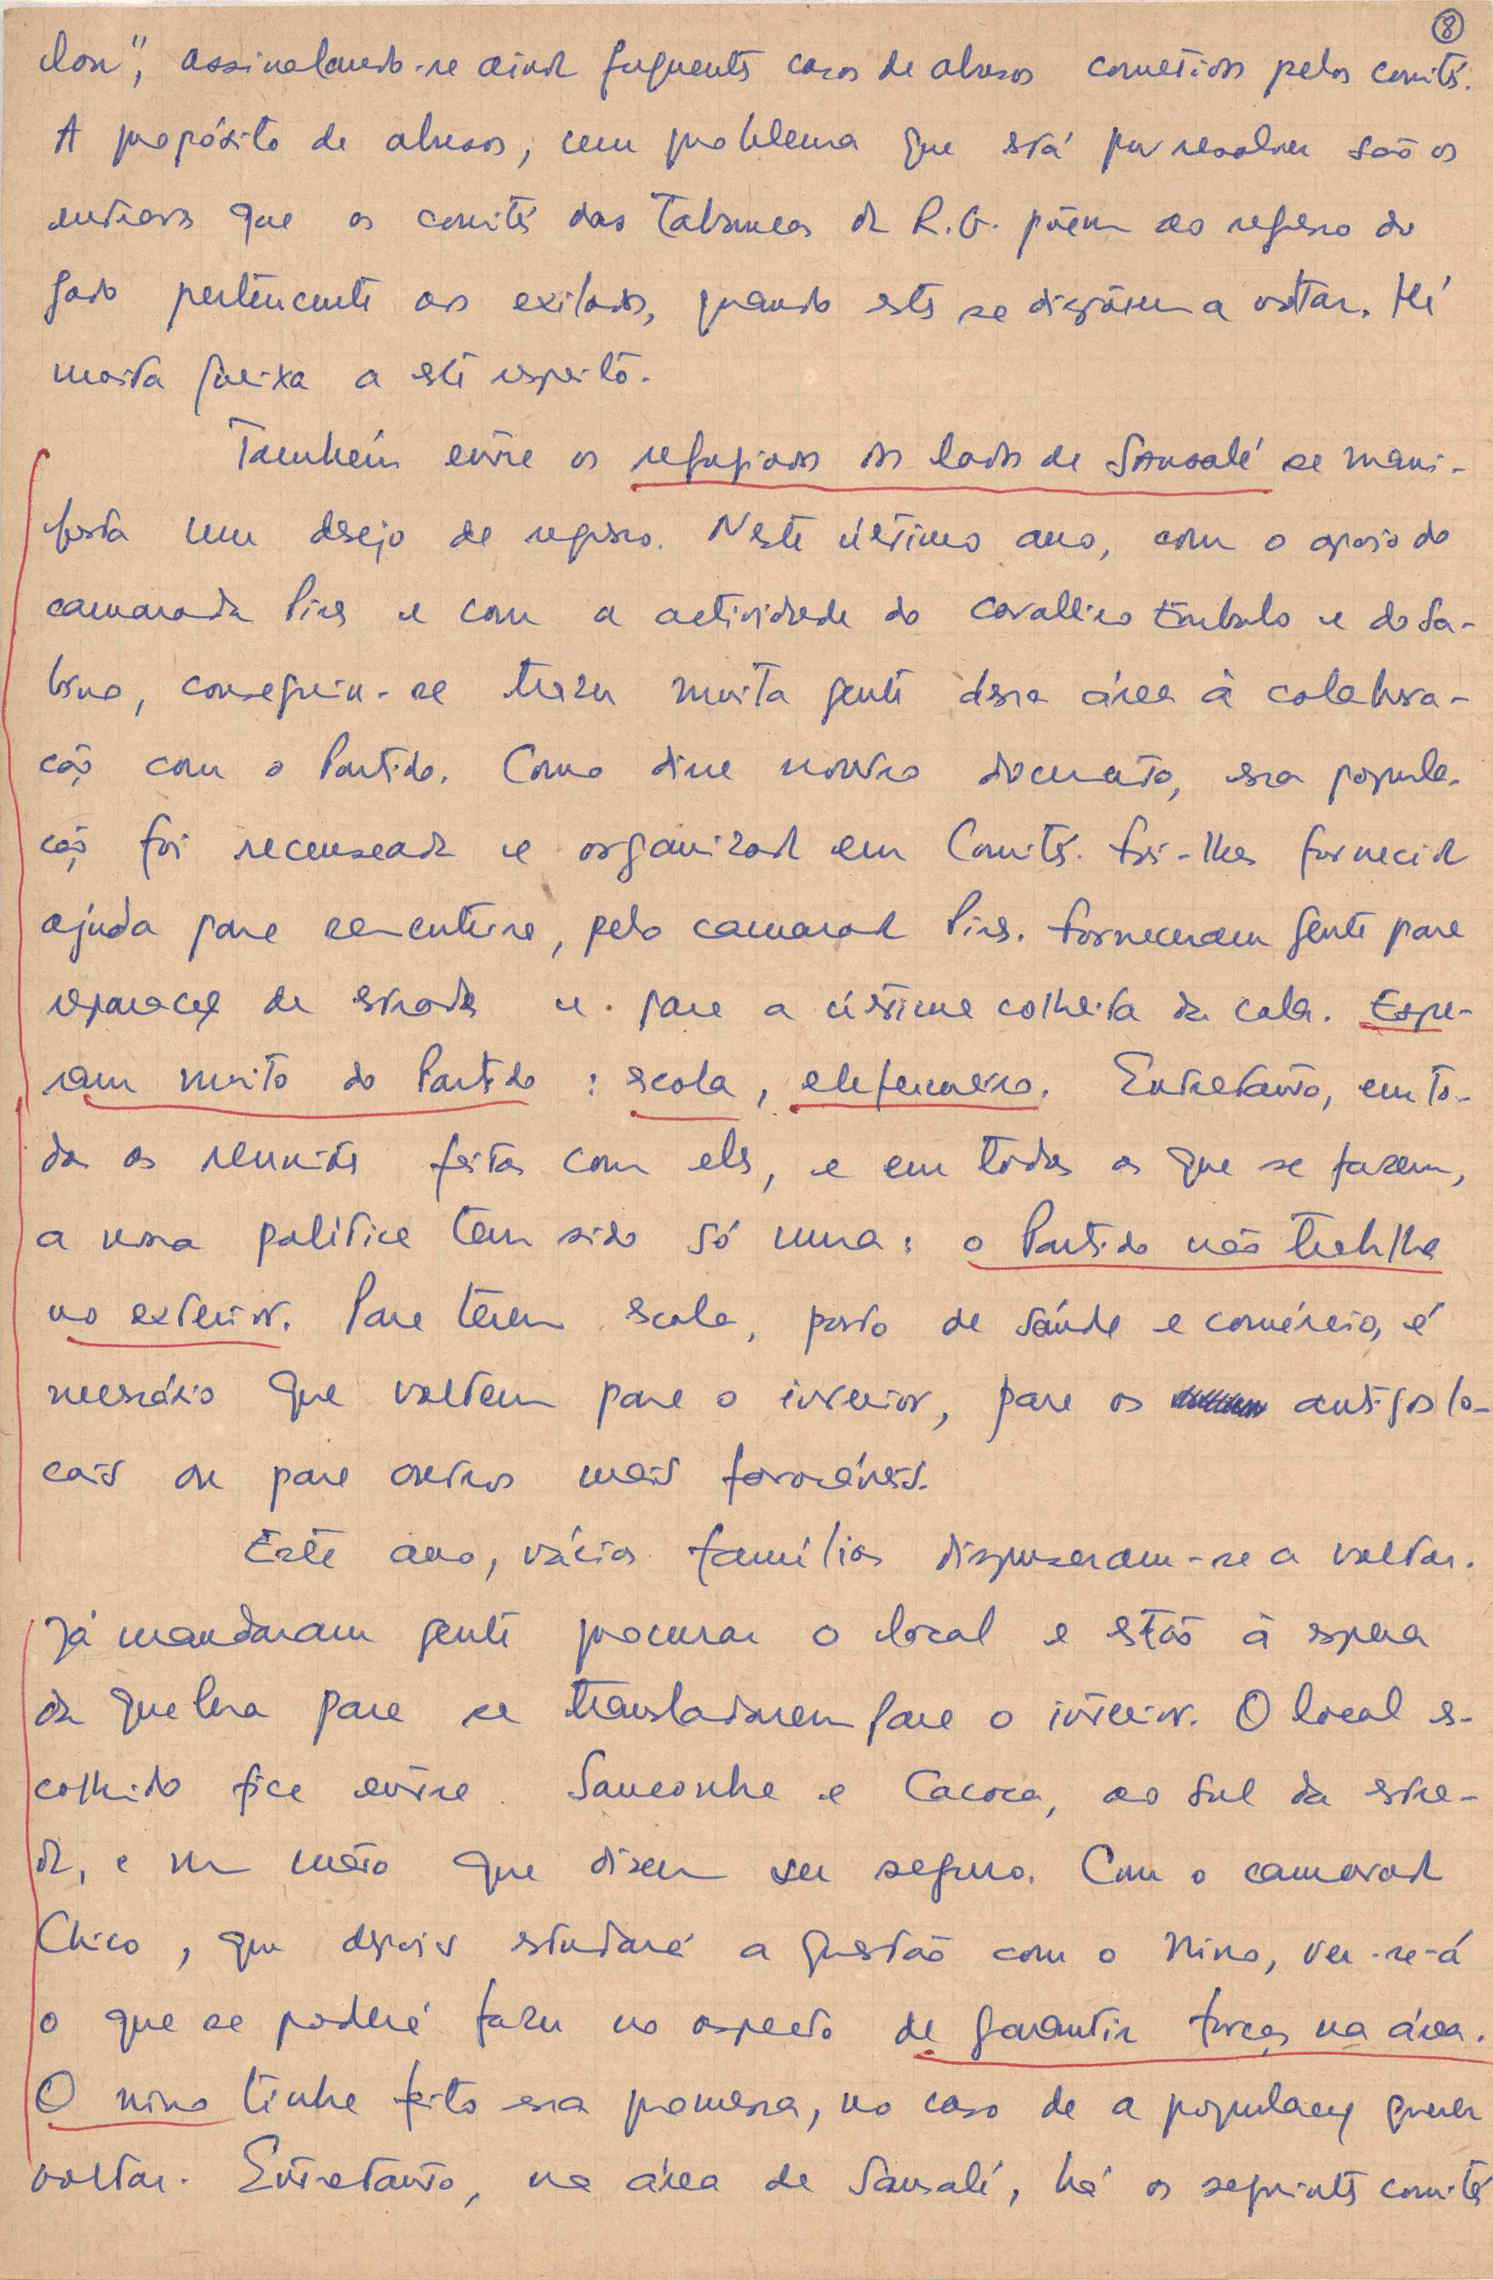 8
dores", assinalando-se ainda frequentes casos de abusos cometidos pelos comités.
A propósito de abusos, um problema que está por resolver são os
entraves que os comités das Tabancas da R.G. põem ao regresso do
gado pertencente aos exilados, quando estes se dispõem a voltar. Há
muita queixa a este respeito.
Também entre os refugiados dos lados de Sansalé se mani-
festa um desejo de regresso. Neste último ano, com o apoio do
camarada Pires e com a actividade do Cavalleiro Embalo e do Sa-
bino, conseguiu-se trazer muita gente dessa área à colabora-
ção com o Partido. Como disse noutro documento, essa popula-
ção foi recenseada e organizada em Comités. Foi-lhes fornecida
ajuda para sementeira, pelo camarada Pires. Forneceram gente para
reparação de estrada e para a última colheita da cola. Espe-
ram muito do Partido: escola, enfermeiro. Entretanto, em to-
das as reuniões feitas com eles, e em todas as que se fazem,
a nossa política tem sido só uma: o Partido não trabalha
no exterior. Para terem escola, posto de saúde e comércio, é
necessário que voltem para o interior, para os antigos lo-
cais ou para outros mais favoráveis.
Este ano, várias famílias dispuseram-se a voltar.
Já mandaram gente procurar o local e estão à espera
da quebra para se transladarem para o interior. O local es-
colhido fica entre Sanconha e Cacoca, ao Sul da estra-
da, e num mato que dizem ser seguro. Com o camarada
Chico, que depois estudará a questão com o Nino, ver-se-á
o que se poderá fazer no aspecto de garantir forças na área.
O Nino tinha feito essa promessa, no caso de a população querer
voltar. Entretanto, na área de Sansalé, há os seguintes comités